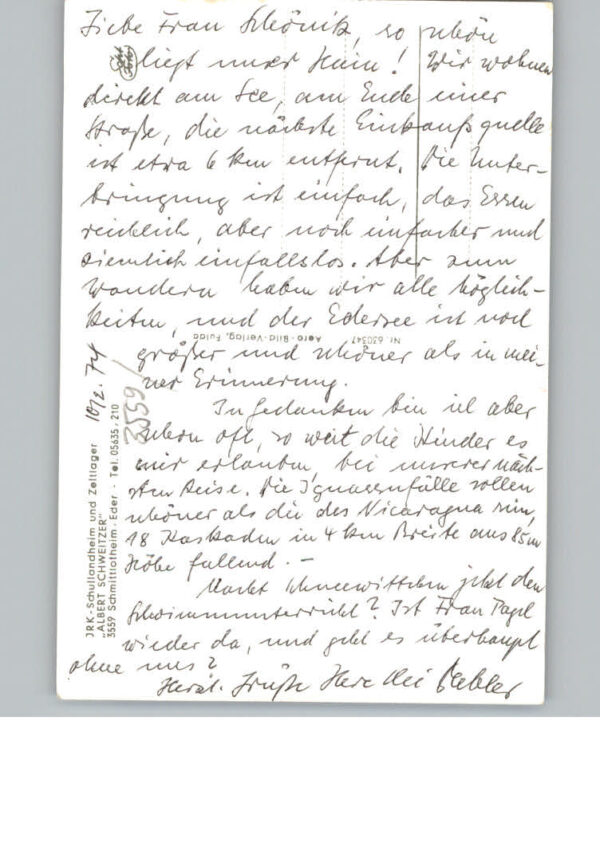 Liebe Frau Schönik, so schön
liegt unser Heim! Wir wohnen
direkt am See, am Ende einer
Straße, die nächste Einkaufsquelle
ist etwa 6 km entfernt. Die Unter-
bringung ist einfach, das Essen
reichlich, aber noch einfacher und
ziemlich einfallslos. Aber zum
Wandern haben wir alle Möglich-
keiten, und der Edersee ist noch
größer und schöner als in mei-
ner Erinnerung.
In Gedanken bin ich aber
schon oft, so weit die Kinder es
mir erlauben, bei unserer näch-
sten Reise. Die Ignassufälle sollen
schöner als die des Nicaragua sein,
18 Kaskaden in 4 km Breite aus 85 m
Höhe fallend. –
Macht Schneewittchen jetzt den
Schwimmunterricht? Ist Frau Pagel
wieder da, und geht es überhaupt
ohne uns?
Herzl. Grüße Ihre
Nr. 630347
Aero-Bild-Verlag, Fulda
10/2. 74
3559
JRK-Schullandheim und Zeltlager
„ALBERT SCHWEITZER"
3559 Schmittlotheim-Eder · Tel. 05635/210